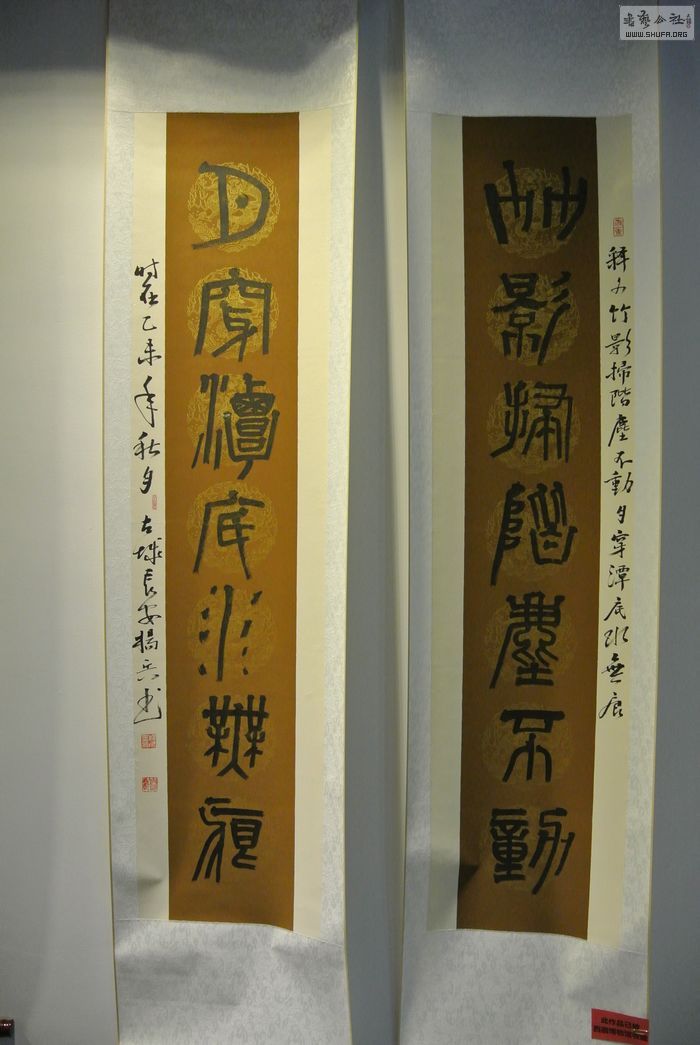 書藝公社
WWW.SHUFA.ORG
釋文竹影掃階塵不動月穿潭底水無痕
竹影掃階塵不動
月穿潭底水無痕
時在乙未年秋月古城長安楊兵書
此作品已被